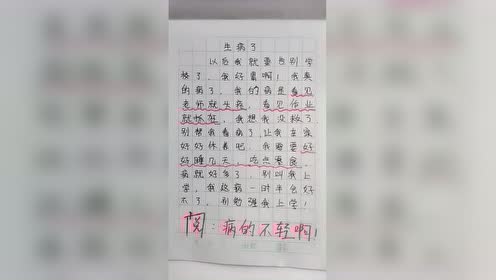 生病了
以后我就要告别学
校了，我好高啊！我真
的病了，我的病是看见
老师就头疼，看见作业
就难受，我想我没救了
别带我看病了，让我在家
好好休养吧，我需要好
好睡几天，吃点零食，
病就好多了，别叫我上
学，我这病一时半会好
不了，别勉强我上学！
阅：病的不轻啊！